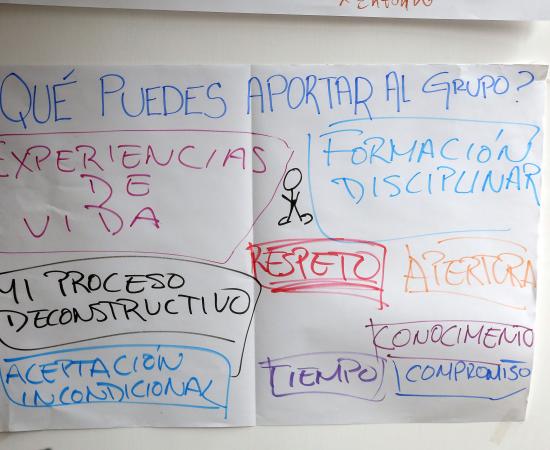 × ENTORNO
QUÉ PUEDES APORTAR AL GRUPO?
EXPERIENCIAS
DE
VIDA
FORMACIÓN
DISCIPLINAR
RESPETO
APERTURA
MI PROCESO
DECONSTRUCTIVO
CONOCIMENTO
ACEPTACIÓN
INCONDICIONAL
TIEMPO
COMPROMISO